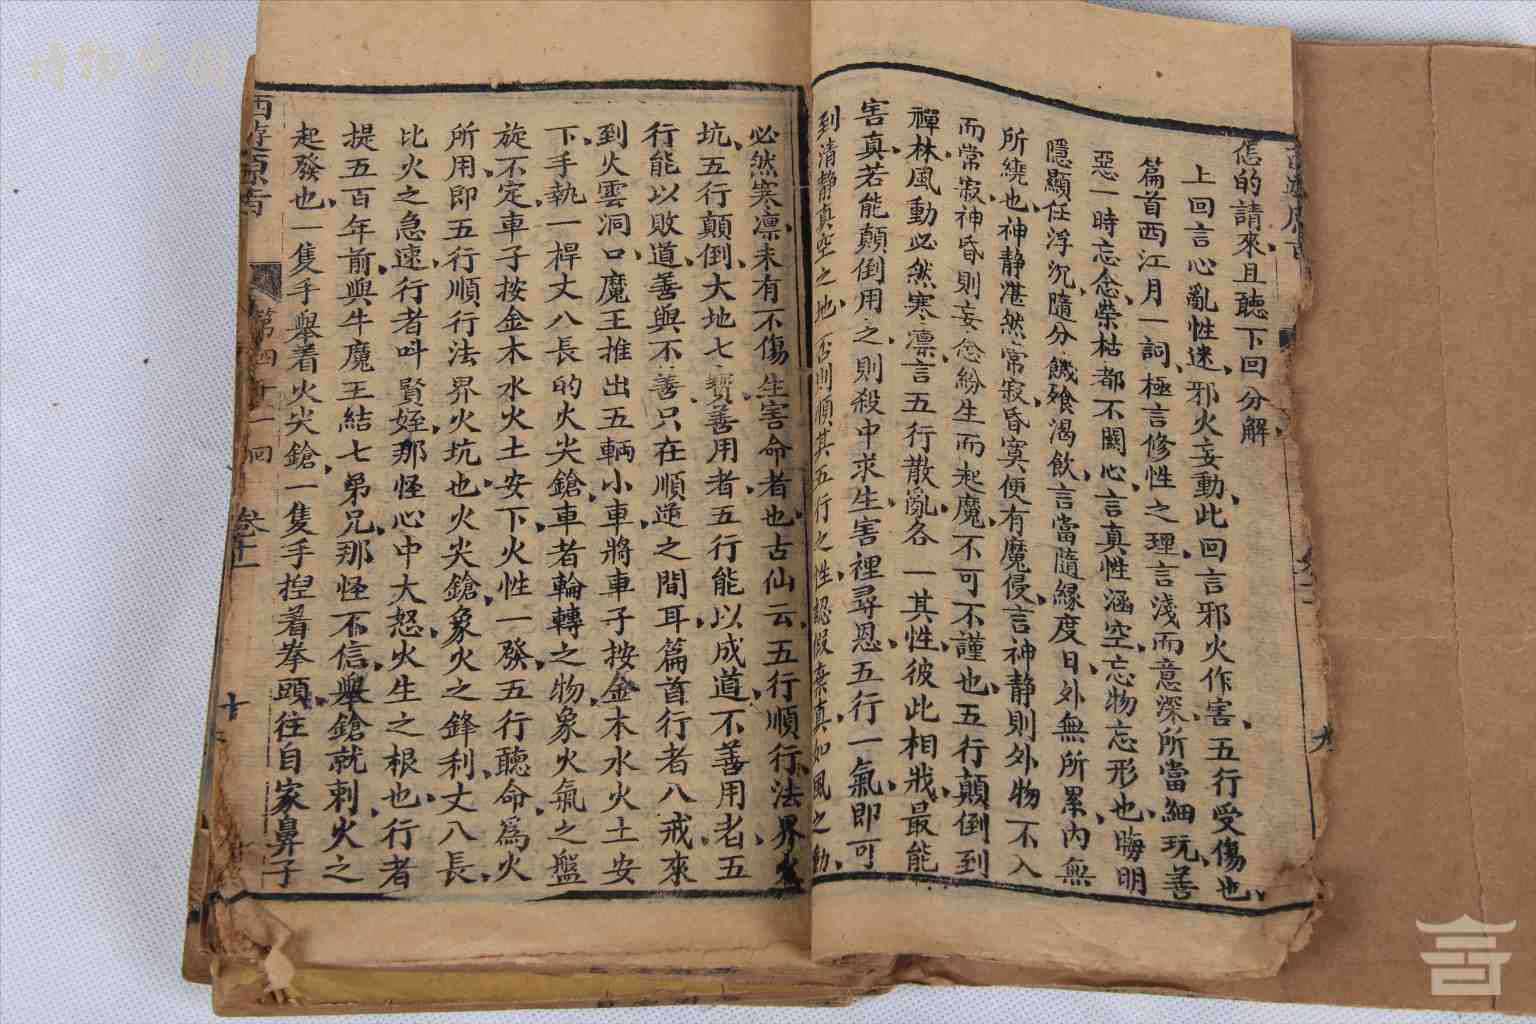 博物中國
怎的請來且聽下回分解
上回言心亂性迷邪火妄動此回言邪火作害五行受傷也
篇首西江月一詞極言修性之理言淺而意深所當細玩善
惡一時忘念榮枯都不關心言真性涵空忘物忘形也晦明
隱顯任浮沉隨分饑飧渴飲言當隨緣度日外無所累內無
所繞也神靜湛然常寂昏冥便有魔侵言神靜則外物不入
而常寂神昏則妄念紛生而起魔不可不謹也五行顛倒到
禪林風動必然寒凛言五行散亂各一其性彼此相戕最能
害真若能顛倒用之則殺中求生害裡尋恩五行一氣即可
到清靜真空之地否則順其五行之性認假棄真如風之動
九
必然寒凛未有不傷生害命者也古仙云五行順行法界火
坑五行顛倒大地七寶善用者五行能以成道不善用者五
行能以敗道善與不善只在順逆之間耳篇首行者八戒來
到火雲洞口魔王推出五輛小車將車子按金木水火土安
下手執一桿丈八長的火尖鎗車者輪轉之物象火氣之盤
旋不定車子按金木水火土安下火性一發五行聽命為火
所用即五行順行法界火坑也火尖鎗象火之鋒利丈八長
比火之急速行者叫賢姪那怪心中大怒火生之根也行者
提五百年前與牛魔王結七弟兄那怪不信舉鎗就刺火之
起發也一隻手舉着火尖鎗一隻手捏着拳頭往自家鼻子
西遊原旨
第四十一回
卷十一
十